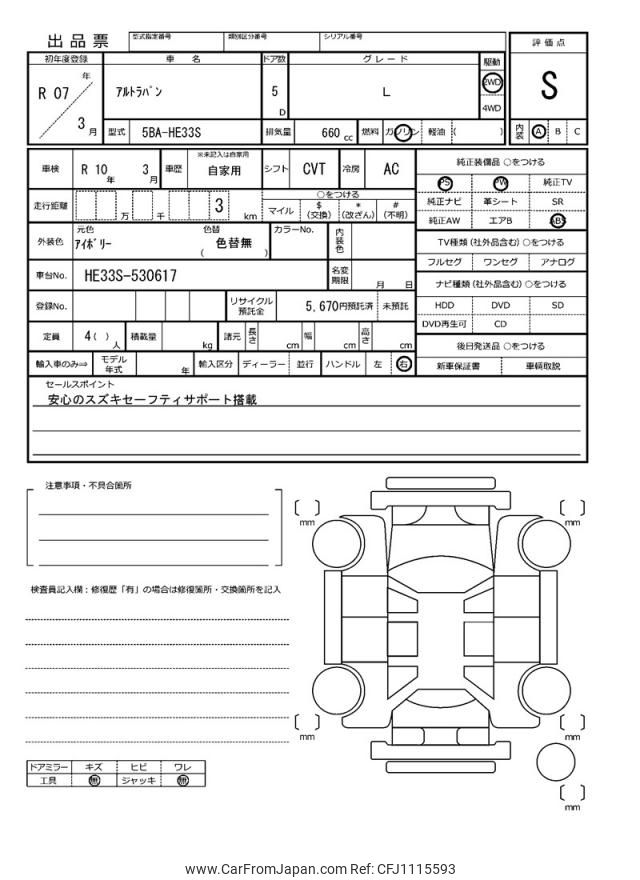 出品票 型式指定番号 類別区分番号 シリアル番号
評価点
S
内装 A B C
初年度登録 車名 ドア数 グレード 駆動
R 07 年 3 月
アルトラパン 5 D L 2WD
4WD
型式 5BA-HE33S 排気量 660 cc 燃料 ガソリン 軽油 ( )
車検 R 10 年 3 月 車歴 ※未記入は自家用 自家用 シフト CVT 冷房 AC
走行距離 万 千 3 km
○をつける
マイル $ (交換) * (改ざん) # (不明)
外装色 元色 アイボリー 色替 ( 色替無 ) カラーNo. 内装色
車台No. HE33S-530617 名変期限 月 日
登録No. リサイクル預託金 5,670円預託済 未預託
定員 4( ) 人 積載量 kg 諸元 長さ cm 幅 cm 高さ cm
輸入車のみ⇒ モデル年式 年 輸入区分 ディーラー 並行 ハンドル 左 右
純正装備品 ○をつける
PS PW 純正TV
純正ナビ 革シート SR
純正AW エアB ABS
TV種類 (社外品含む) ○をつける
フルセグ ワンセグ アナログ
ナビ種類 (社外品含む) ○をつける
HDD DVD SD
DVD再生可 CD
後日発送品 ○をつける
新車保証書 車輌取説
セールスポイント
安心のスズキセーフティサポート搭載
注意事項・不具合箇所
検査員記入欄：修復歴「有」の場合は修復箇所・交換箇所を記入
ドアミラー キズ ヒビ ワレ
工具 無 ジャッキ 無
mm
mm
mm
mm
mm
www.CarFromJapan.com Ref: CFJ1115593